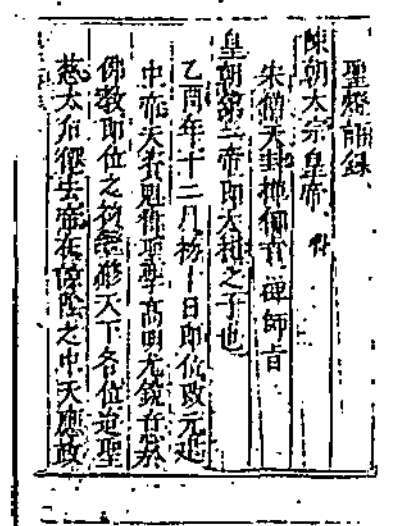 聖燈語錄
陳朝太宗皇帝
僧天封 禪師旨
皇朝第一帝即太祖之子也
乙酉年十二月初十日即位改元建
中帝天資魁偉聖學高明尤銳意於
佛教即位之初 天下各位迨聖
慈太后 去帝在諒陰之中天應政